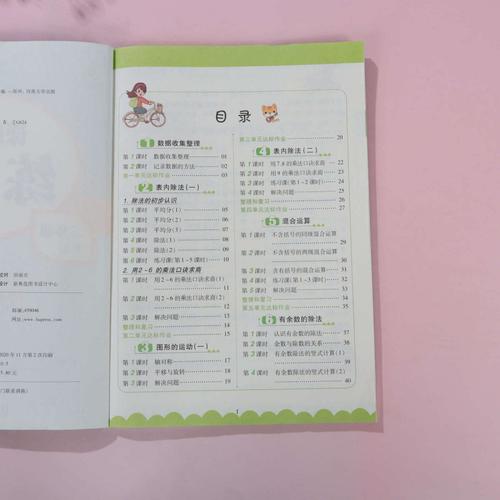 目录
1 数据收集整理
第1课时 数据收集整理 01
第2课时 记录数据的方法 03
第一单元达标作业 04
2 表内除法(一)
1. 除法的初步认识
第1课时 平均分(1) 05
第2课时 平均分(2) 06
第3课时 平均分(3) 07
第4课时 除法(1) 08
第5课时 除法(2) 09
第6课时 练习课(第1~5课时) 10
2. 用2~6的乘法口诀求商
第1课时 用2~6的乘法口诀求商(1)
11
第2课时 用2~6的乘法口诀求商(2)
12
第3课时 解决问题 14
整理和复习 15
第二单元达标作业 15
3 图形的运动(一)
第1课时 轴对称 17
第2课时 平移与旋转 18
第3课时 解决问题 19
第三单元达标作业 20
4 表内除法(二)
第1课时 用7、8的乘法口诀求商 22
第2课时 用9的乘法口诀求商 23
第3课时 练习课(第1~2课时) 24
第4课时 解决问题 25
整理和复习 26
第四单元达标作业 27
5 混合运算
第1课时 不含括号的同级混合运算
29
第2课时 不含括号的两级混合运算
30
第3课时 含有括号的混合运算 31
第4课时 练习课(第1~3课时) 32
第5课时 解决问题 33
整理和复习 34
第五单元达标作业 35
6 有余数的除法
第1课时 认识有余数的除法 37
第2课时 余数与除数的关系 38
第3课时 有余数除法的竖式计算(1)
39
第4课时 有余数除法的竖式计算(2)
40
1
邮编:450046
2020年11月第2次印刷